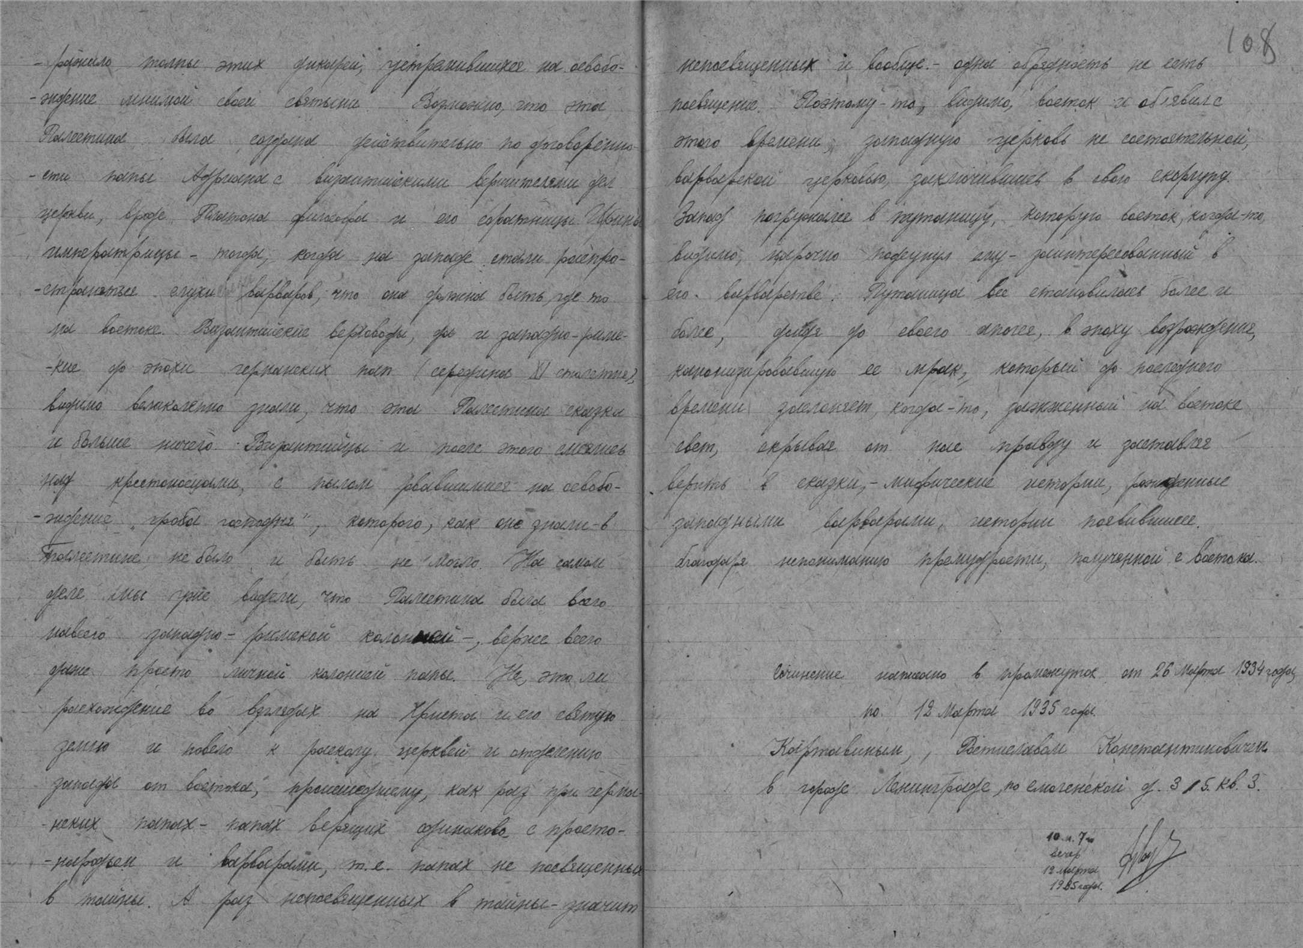 толпы этих дикарей, устремившихся на освобо-
-ждение мнимой своей святыни. Возможно, что эта
Палестина была создана действительно по договоренно-
сти папы Адриана с византийскими вершителями дел
церкви, вроде Платона философа и его соратницы Ирины
императрицы - тогда, когда на западе стали распро-
-страняться слухи варваров, что она должна быть где то
на востоке. Византийские верховоды, да и западно-римс-
-кие до эпохи германских пап (середина XI столетия),
видимо великолепно знали, что эта Палестина сказка
и больше ничего. Византийцы и после этого смеялись
над крестоносцами, с пылом рвавшимися на освобо-
-ждение "гроба господня", которого, как они знали - в
Палестине не было и быть не могло. На самом
деле мы уже видели, что Палестина была всего
навсего западно-римской колонией -, вернее всего
даже просто личной колонией папы. Не это ли
расхождение во взглядах на Христа и его святую
землю и повело к расколу церквей и отделению
запада от востока, происшедшему, как раз при герма-
-нских папах - папах верящих одинаково с просто-
-народьем и варварами, т.е. папах не посвященных
в тайны. А раз непосвященных в тайны - значит
108
непосвященных и вообще. - одна обрядность не есть
посвящение. Поэтому-то, видимо, восток и объявил с
этого времени, западную церковь не состоятельной,
варварской церковью, заключившись в свою скорлупу.
Запад погружался в путаницу, которую восток, когда-то,
видимо, нарочно подсунул ему - заинтересованный в
его варварстве. Путаница все становилась более и
более, дойдя до своего апогея, в эпоху возрождения,
канонизировавшую ее мрак, который до последнего
времени заслоняет, когда-то, зажженный на востоке
свет, скрывая от нас правду и заставляя
верить в сказки, - мифические истории, рожденные
западными варварами, истории появившиеся
благодаря непониманию премудрости, полученной с востока.
Сочинение написано в промежуток от 26 Марта 1934 года,
по 12 Марта 1935 года.
Ростиславом Константиновичем
в городе Ленинграде, по Смоленской д. 3/5. кв. 3.
10 ч. 7 м
вечер
12 марта
1935 года.